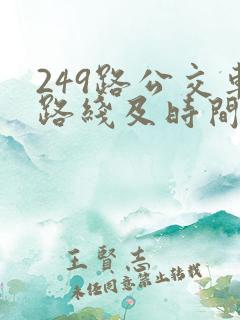 249路公交車
路綫及時間
王賢志
未经同意禁止转载